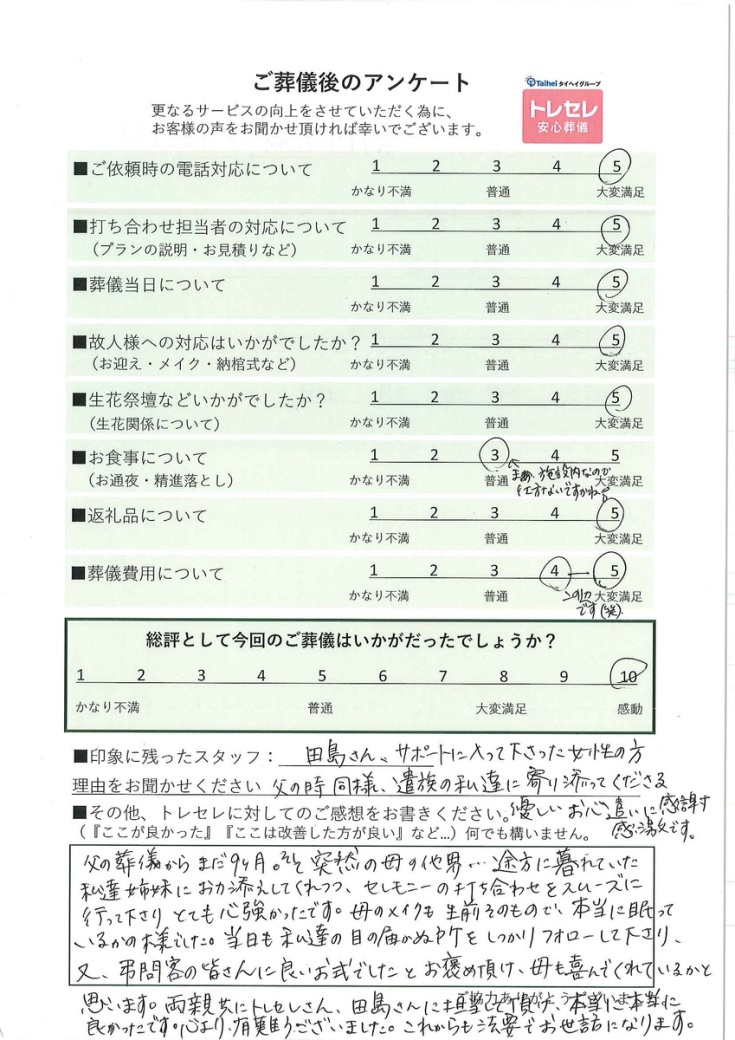 ご葬儀後のアンケート
Taihei タイヘイグループ
トレセレ
安心葬儀
更なるサービスの向上をさせていただく為に、
お客様の声をお聞かせ頂ければ幸いでございます。
■ご依頼時の電話対応について 1 2 3 4 5
かなり不満 普通 大変満足
■打ち合わせ担当者の対応について 1 2 3 4 5
（プランの説明・お見積りなど） かなり不満 普通 大変満足
■葬儀当日について 1 2 3 4 5
かなり不満 普通 大変満足
■故人様への対応はいかがでしたか？ 1 2 3 4 5
（お迎え・メイク・納棺式など） かなり不満 普通 大変満足
■生花祭壇などいかがでしたか？ 1 2 3 4 5
（生花関係について） かなり不満 普通 大変満足
■お食事について 1 2 3 4 5
（お通夜・精進落とし） かなり不満 普通 大変満足
←まあ、施設内なので
仕方ないですかね
■返礼品について 1 2 3 4 5
かなり不満 普通 大変満足
■葬儀費用について 1 2 3 4 5
かなり不満 普通 大変満足
この辺
です(笑)
総評として今回のご葬儀はいかがだったでしょうか？
1 2 3 4 5 6 7 8 9 10
かなり不満 普通 大変満足 感動
■印象に残ったスタッフ： 田島さん、サポートに入って下さった女性の方
理由をお聞かせください 父の時同様、遺族の私達に寄り添ってくださる
優しいお心遣いに感謝す
感激です。
■その他、トレセレに対してのご感想をお書きください。
（『ここが良かった』『ここは改善した方が良い』など…）何でも構いません。
父の葬儀からまだ9ヶ月。突然の母の他界… 途方に暮れていた
私達姉妹にお力添えしてくれつつ、セレモニーの打ち合わせをスムーズに
行って下さり とても心強かったです。母のメイクも生前そのもので、本当に眠って
いるかの様でした。当日も私達の目の届かぬ所をしっかりフォローして下さり、
又、弔問客の皆さんに良いお式でしたとお褒め頂け、母も喜んでくれているかと
思います。両親共にトレセレさん、田島さんに担当して頂け、本当に本当に
良かったです。心より、有難うございました。これからも法要でお世話になります。
ご協力ありがとうございました